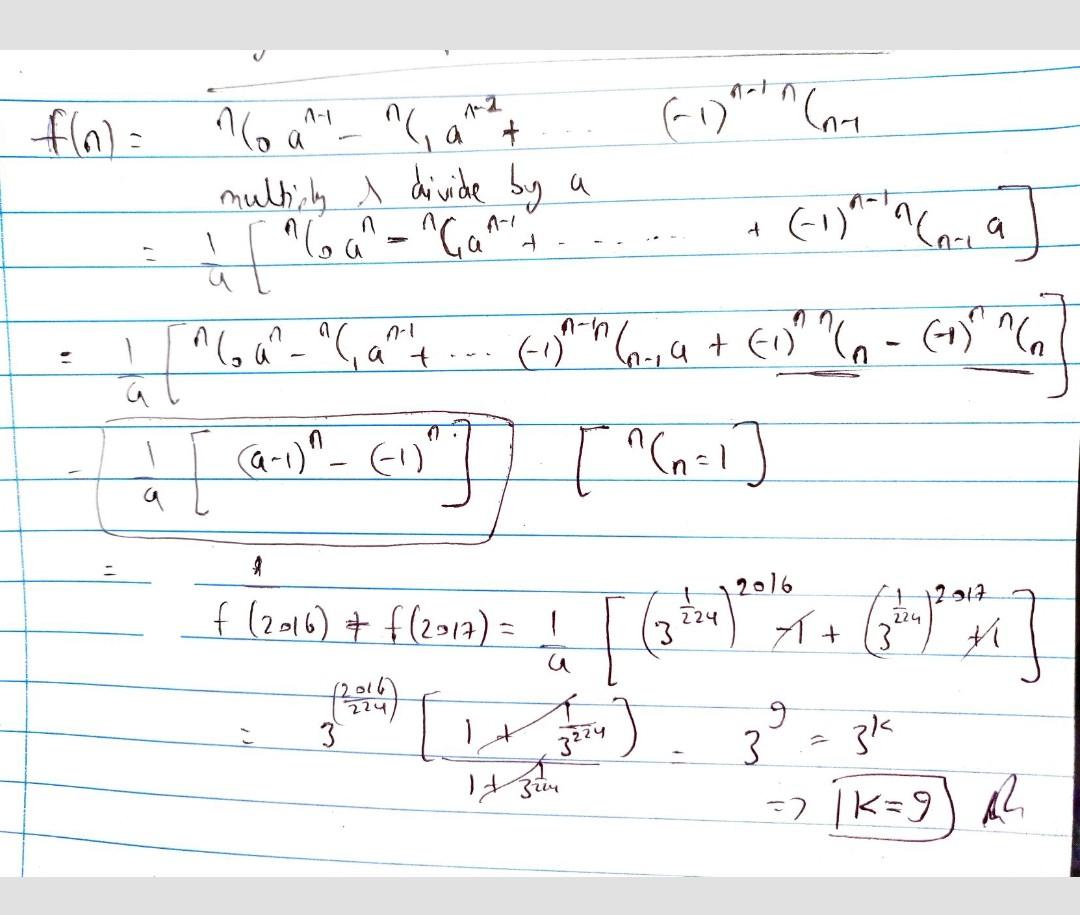 f(n) = ⁿC₀ aⁿ⁻¹ − ⁿC₁ aⁿ⁻² + .... (-1)ⁿ⁻¹ ⁿCₙ₋₁
multiply & divide by a
= 1/a [ ⁿC₀ aⁿ − ⁿC₁ aⁿ⁻¹ + ........ + (-1)ⁿ⁻¹ ⁿCₙ₋₁ a ]
= 1/a [ ⁿC₀ aⁿ − ⁿC₁ aⁿ⁻¹ + ... (-1)ⁿ⁻¹ ⁿCₙ₋₁ a + (-1)ⁿ ⁿCₙ − (-1)ⁿ ⁿCₙ ]
= 1/a [ (a-1)ⁿ − (-1)ⁿ ] [ ⁿCₙ = 1 ]
=
f(2016) + f(2017) = 1/a [ (3^(1/224))^2016 − 1 + (3^(1/224))^2017 + 1 ]
= 3^(2016/224) [ 1 + 3^(1/224) ) / 1 + 3^(1/224) = 3⁹ = 3ᵏ
=> K = 9